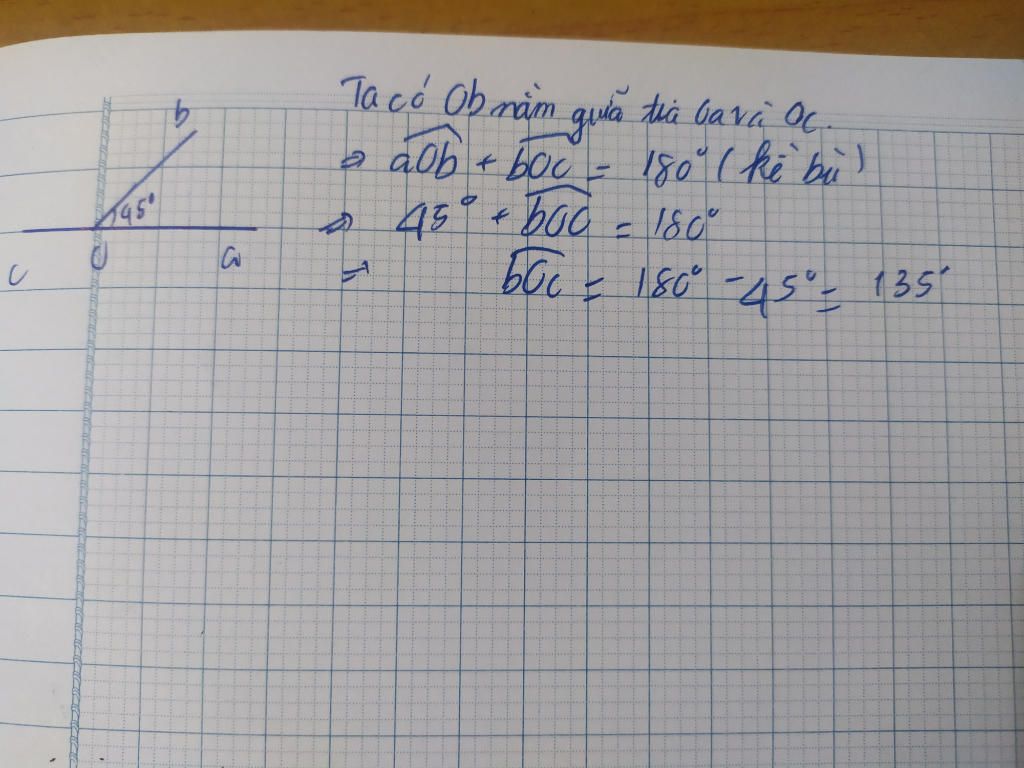 Ta có Ob nằm giữa tia Oa và Oc.
b
⇒ aOb + bOc = 180° (kề bù)
45°
⇒ 45° + bOc = 180°
c O a
⇒ bOc = 180° - 45° = 135°